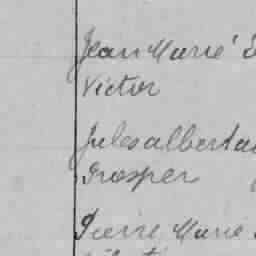 Jean Marie
Victor
Jules albert
Prosper
Pierre Marie